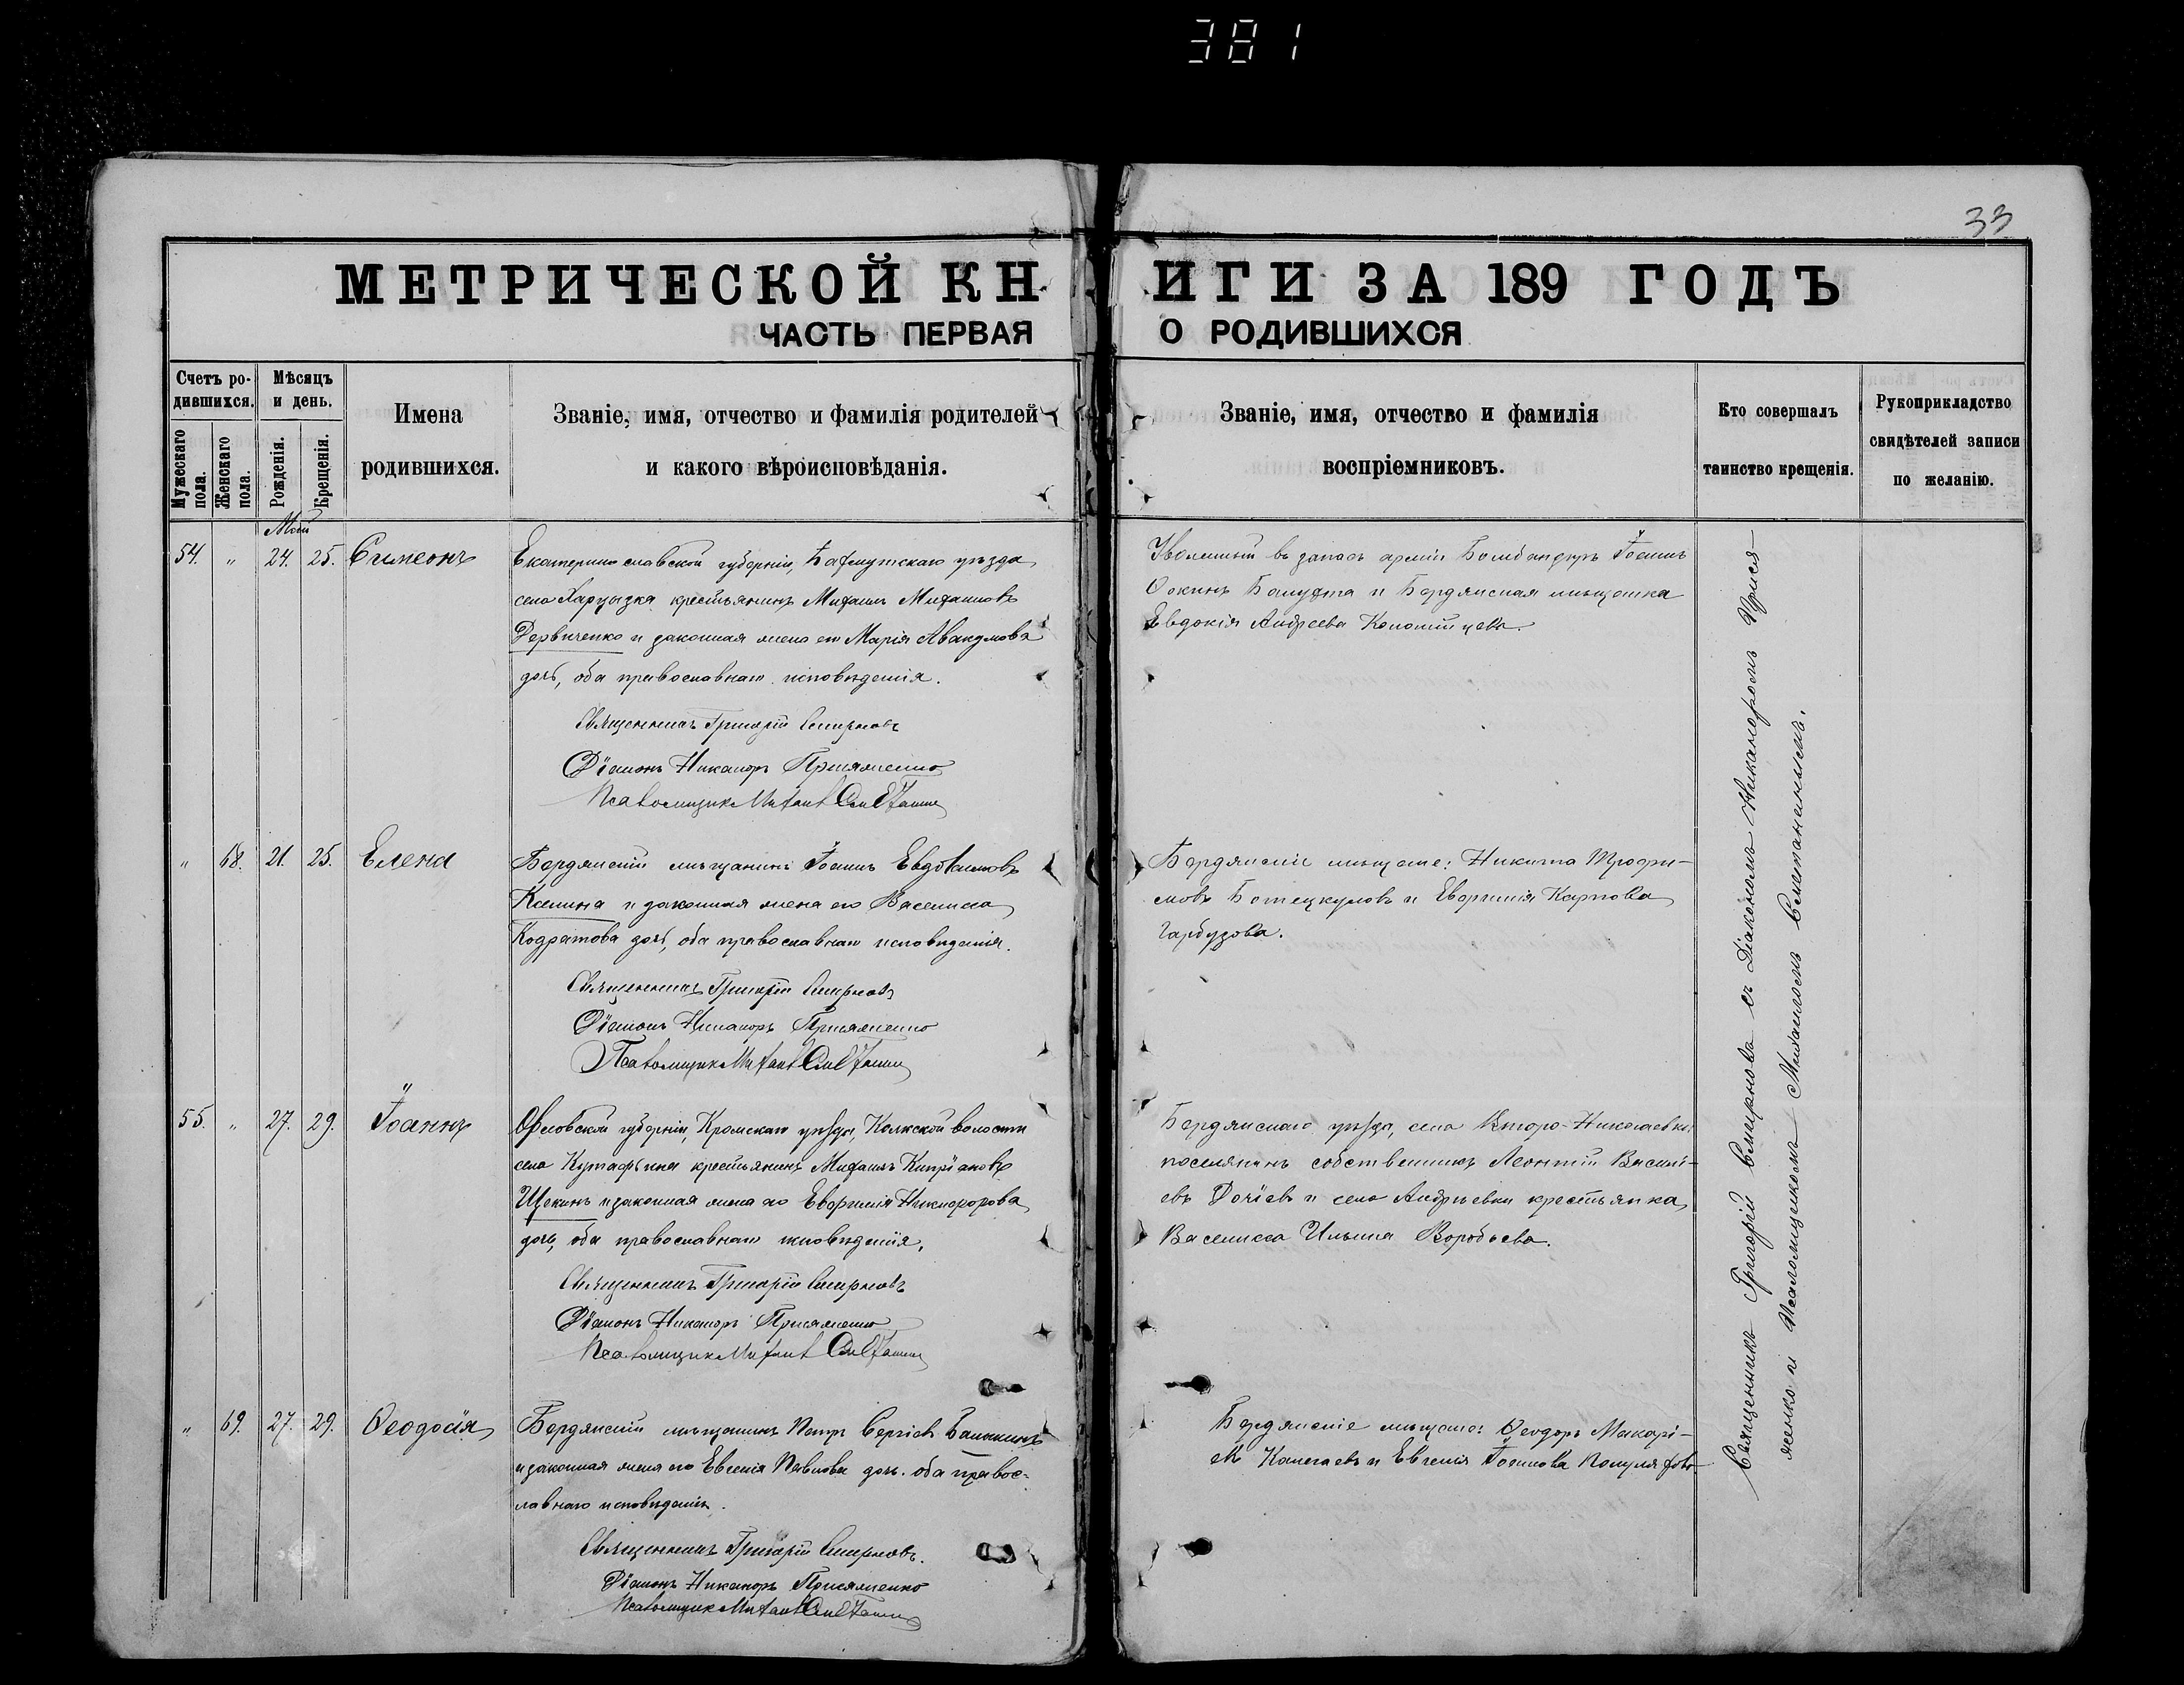 381
33
МЕТРИЧЕСКОЙ КНИГИ ЗА 189 ГОДЪ
ЧАСТЬ ПЕРВАЯ О РОДИВШИХСЯ
Счетъ ро-
дившихся.
Мужескаго
пола.
Женскаго
пола.
Мѣсяцъ
и день.
Рожденія.
Крещенія.
Имена
родившихся.
Званіе, имя, отчество и фамилія родителей
и какого вѣроисповѣданія.
Званіе, имя, отчество и фамилія
воспріемниковъ.
Кто совершалъ
таинство крещенія.
Рукоприкладство
свидѣтелей записи
по желанію.
Май
54. " 24. 25. Симеонъ
Екатеринославской губерніи, Бахмутскаго уѣзда
села Харцызка крестьянинъ Михаилъ Михаиловъ
Дервиченко и законная жена его Марія Авакумова
дочь, оба православнаго исповѣданія.
Священникъ Григорій Смирновъ
Діаконъ Никаноръ Присяженко
Псаломщикъ Михаилъ
Уволенный въ запасъ арміи Бомбандиръ Іоаннъ
Бамуфта и Бердянская мѣщанка
Евдокія Андреева Коломійцева.
" 68. 21. 25. Елена
Бердянскій мѣщанинъ Іоаннъ Евдокимовъ
и законная жена его Василиса
Кодратова дочь, оба православнаго исповѣданія.
Священникъ Григорій Смирновъ
Діаконъ Никаноръ Присяженко
Псаломщикъ Михаилъ
Бердянскіе мѣщане: Никита Трофи-
мовъ и Евфимія Карпова
Гарбузова.
55. " 27. 29. Іоаннъ
Орловской губерніи, Кромскаго уѣзда, волости
села Кутафина крестьянинъ Михаилъ Кипріановъ
Щекинъ и законная жена его Евфимія Никифорова
дочь, оба православнаго исповѣданія.
Священникъ Григорій Смирновъ
Діаконъ Никаноръ Присяженко
Псаломщикъ Михаилъ
Бердянскаго уѣзда, села Второ-Николаевки
поселянинъ собственникъ Леонтій Василі-
евъ и села Андреевки крестьянка
Василисса Ильина Воробьева.
" 69. 27. 29. Ѳеодосія
Бердянскій мѣщанинъ Петръ Сергіевъ
и законная жена его Евгенія Павлова дочь. оба правос-
лавнаго исповѣданія.
Священникъ Григорій Смирновъ.
Діаконъ Никаноръ Присяженко
Псаломщикъ Михаилъ
Бердянскіе мѣщане: Ѳеодоръ Макарі-
евъ и Евгенія Іоаннова
Священникъ Григорій Смирновъ съ Діакономъ Никаноромъ Прися-
женко и Псаломщикомъ Михаиломъ